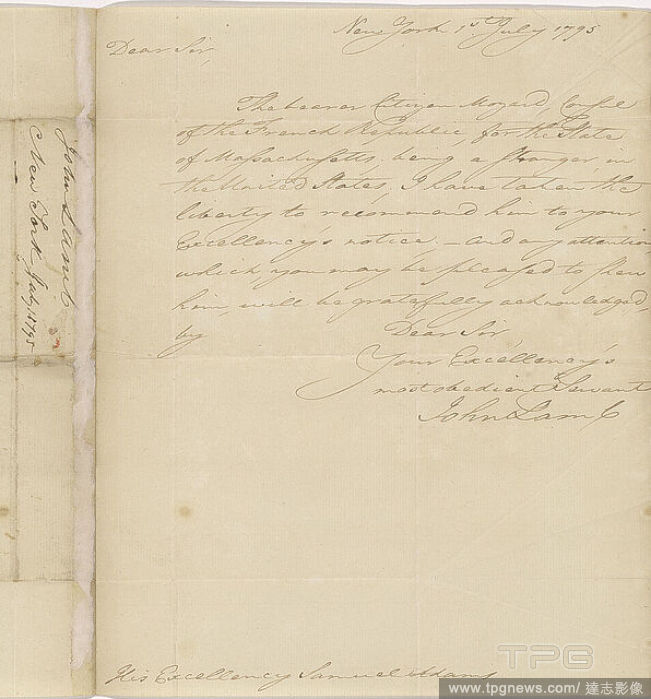 New York 1st July 1795
Dear Sir,
The bearer Citizen Mozard, Consul
of the French Republic, for the State
of Massachusetts being a stranger, in
the United States, I have taken the
liberty to recommend him to your
Excellency's notice. – and any attention
which you may be pleased to shew
him, will be gratefully acknowledged,
by
Dear Sir
Your Excellency's
most obedient Servant
John Lamb
His Excellency Samuel Adams
John Lamb
New York July 1795
TPG
www.tpgnews.com | 達志影像